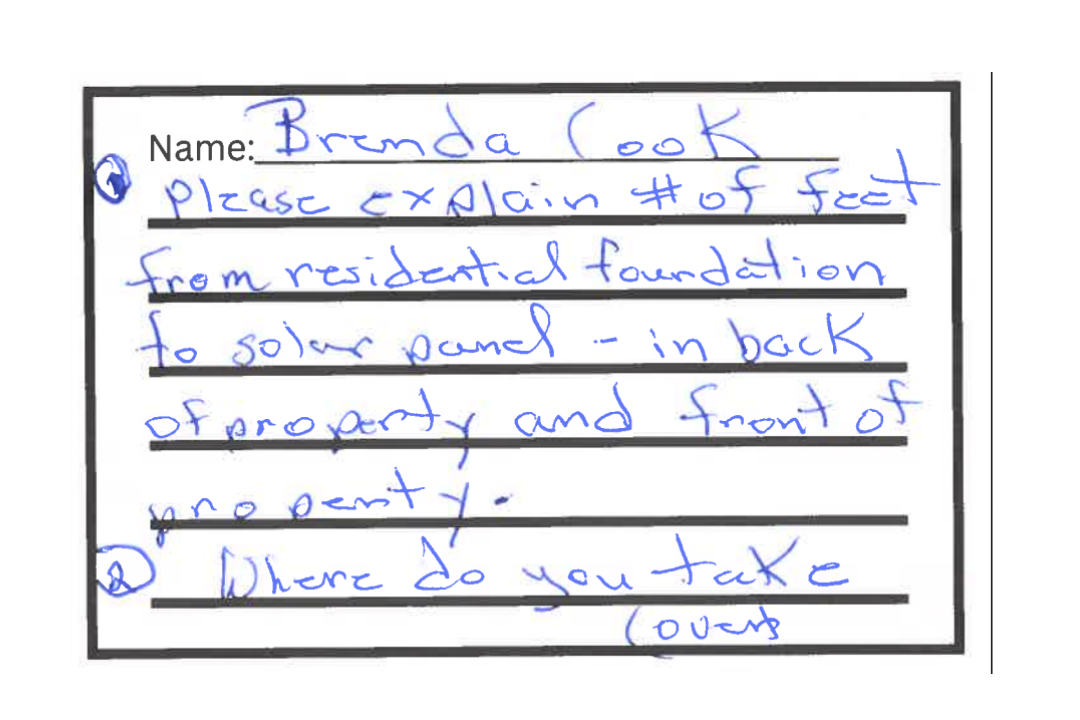 Name: Brenda Cook
① Please explain # of feet
from residential foundation
to solar panel - in back
of property and front of
property.
② Where do you take
(over)